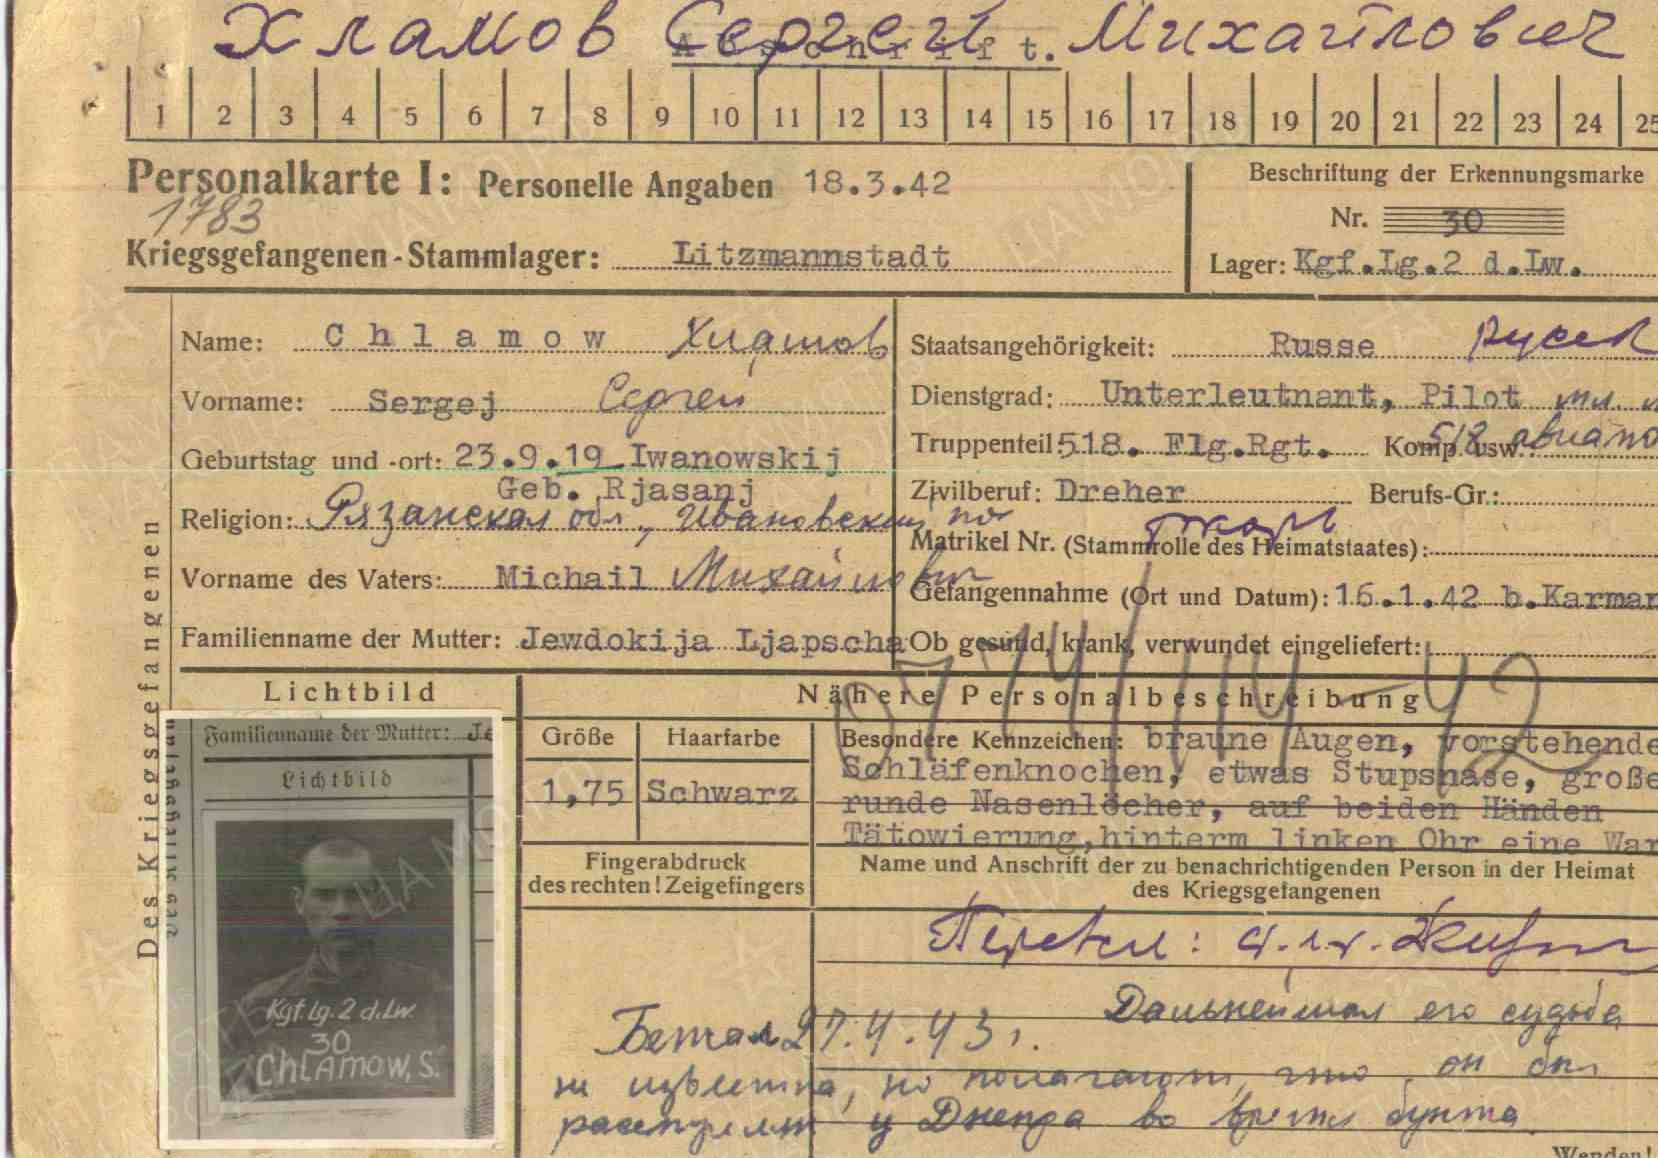 Хламов Сергей Михайлович
Abschrift.
1 2 3 4 5 6 7 8 9 10 11 12 13 14 15 16 17 18 19 20 21 22 23 24 25
Personalkarte I: Personelle Angaben 18.3.42
Beschriftung der Erkennungsmarke
1783
Nr. 30
Kriegsgefangenen-Stammlager: Litzmannstadt
Lager: Kgf.Lg.2 d.Lw.
Des Kriegsgefangenen
Name: Chlamow Хламов
Vorname: Sergej Сергей
Geburtstag und -ort: 23.9.19 Iwanowskij
Geb. Rjasanj
Religion: Рязанская обл., Ивановский
Vorname des Vaters: Michail Михайлович
Familienname der Mutter: Jewdokija Ljapscha
Staatsangehörigkeit: Russe
Dienstgrad: Unterleutnant, Pilot мл.
Truppenteil: 518. Flg.Rgt. Komp. usw.: 518 авиапо
Zivilberuf: Dreher Berufs-Gr.:
токарь
Matrikel Nr. (Stammrolle des Heimatstaates):
Gefangennahme (Ort und Datum): 16.1.42 b.Karman
Ob gesund, krank, verwundet eingeliefert:
Lichtbild
Familienname der Mutter: Je
Lichtbild
Kgf.Lg.2 d.Lw.
30
Chlamow, S.
Nähere Personalbeschreibung
Größe
1,75
Haarfarbe
Schwarz
Besondere Kennzeichen: braune Augen, vorstehende
Schläfenknochen, etwas Stupsnase, große
runde Nasenlöcher, auf beiden Händen
Tätowierung, hinterm linken Ohr eine War
Fingerabdruck
des rechten! Zeigefingers
Name und Anschrift der zu benachrichtigenden Person in der Heimat
des Kriegsgefangenen
Перевел:
Бежал 27.4.43 г. Дальнейшая его судьба
не известна, но полагают, что он был
расстрелян у Днепра во время бунта
Wenden!